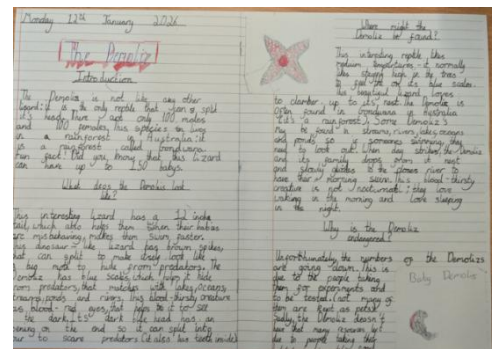 Monday 12th January 2026
The Demoliz
Introduction
The Demoliz is not like any other
lizard: it is the only reptile that can split
it's head. There are only 100 males
and 100 females, this species lives
in a rainforest in Australia it
is a rainforest called Gondwana
fun fact! Did you know that this lizard
can have up to 150 babys.
What does the Demoliz look
like?
This interesting lizard has a 12 inch
tail, which also helps them when their babies
are misbehaving, makes them swim faster.
This dinosaur-like lizard has brown spikes,
that can split to make it look like
big to hide from predators. The
Demoliz has blue scales which help it hide
from predators, that matches with lakes, oceans,
streams, ponds and rivers, this blood-thirsty creature
has blood-red eyes, that helps it to see
in the dark. It's dark head has an
opening on the end so it can split into
four to scare predators (it also has teeth inside)
Where might the
Demoliz be
found?
This interesting reptile likes
medium temperatures - it normally
likes staying high in the trees
to get on its blue scales.
This beautiful lizard loves
to clamber up to its nest. The Demoliz is
often found in Gondwana in Australia
(it's a rainforest). Some Demoliz's
may be found in streams, rivers, lakes, oceans
and ponds so if someones swimming, they
need to look out. When day strikes, the Demoliz
and its family drops from it nest
and slowly glides to the river to
have their morning swim. this blood-thirsty
creature is not nocturnal: they love
waking in the morning and love sleeping
in the night.
Why is the Demoliz
endangered?
Unfortunately, the numbers of the Demolizs
are going down. This is
due to the people taking
them for experiments and
to be tested. Not many of
them are kept as pets.
Sadly, the Demoliz doesn't
have that many
due to people taking they
Baby Demoliz